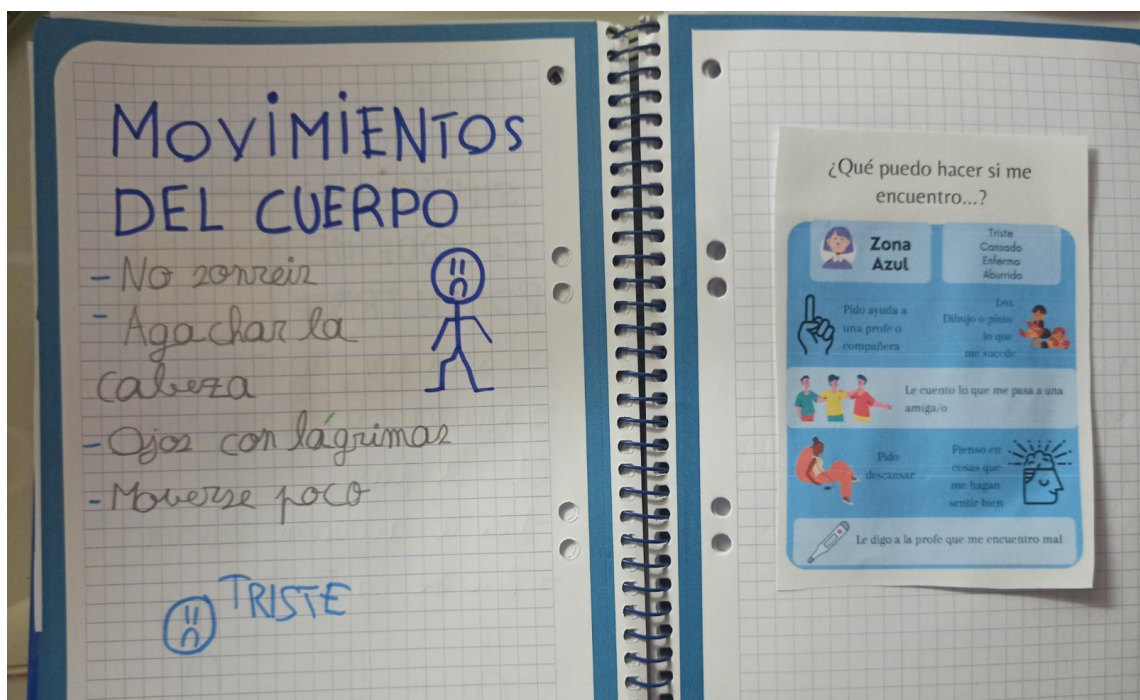 MOVIMIENTOS
DEL CUERPO
- No zonreir
- Agachar la
cabeza
- Ojos con lágrimas
- Moverse poco
TRISTE
¿Qué puedo hacer si me
encuentro...?
Zona
Azul
Triste
Cansado
Enfermo
Aburrido
Pido ayuda a
una profe o
compañera
Leo.
Dibujo o pinto
lo que
me sucede
Le cuento lo que me pasa a una
amiga/o
Pido
descansar
Pienso en
cosas que
me hagan
sentir bien
Le digo a la profe que me encuentro mal